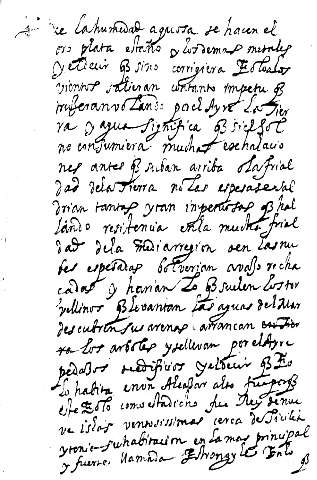 de la humedad aquosa se hacen el
oro plata estaño y los demas metales
y el decir q si no corrigiera Eolo a los
vientos salieran con tanto impetu q
truxeran volando por el Ayre la Tier
ra y agua significa q si el sol
no consumiera muchas exhalacio
nes antes q suban arriba o la frial
dad de la Tierra no las espesase sal
drian tantas y tan impetuosas q ha
llando resistencia en la mucha frial
dad de la media region o en las nu
bes espesadas bolverian avajo recha
cadas y harian lo q suelen los tor
vellinos q levantan las aguas del Mar
descubren sus arenas arrancan
los arboles y se llevan por el ayre
pedaços de edificios y el decir q Eo
lo habita en un Alcaçar alto fue porq
este Eolo como esta dicho fue Rey de nue
ve islas ventosissimas cerca de Sicilia
y tenia su habitacion en la mas principal
y fuerte llamada Estrongyle En lo
q